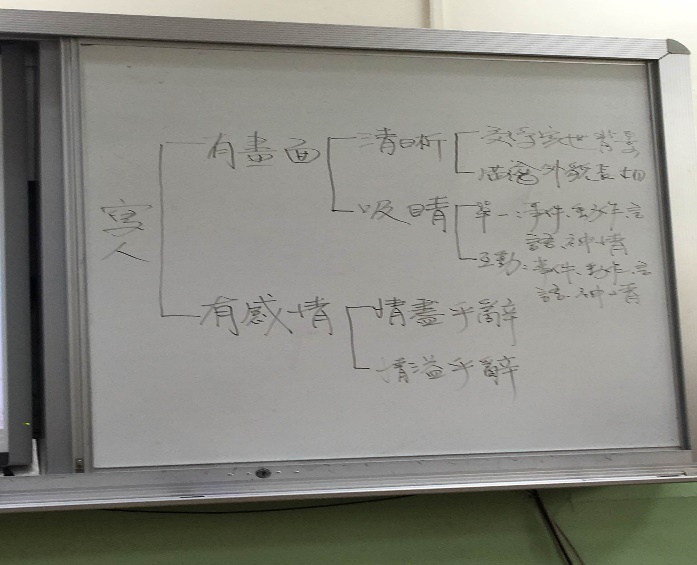 寫人
有畫面
清晰
交待字世背景
描繪外貌衣
吸睛
單一：事件、動作、言
語、神情
互動：事件、動作、言
語、神情
有感情
情盡乎辭
情溢乎辭